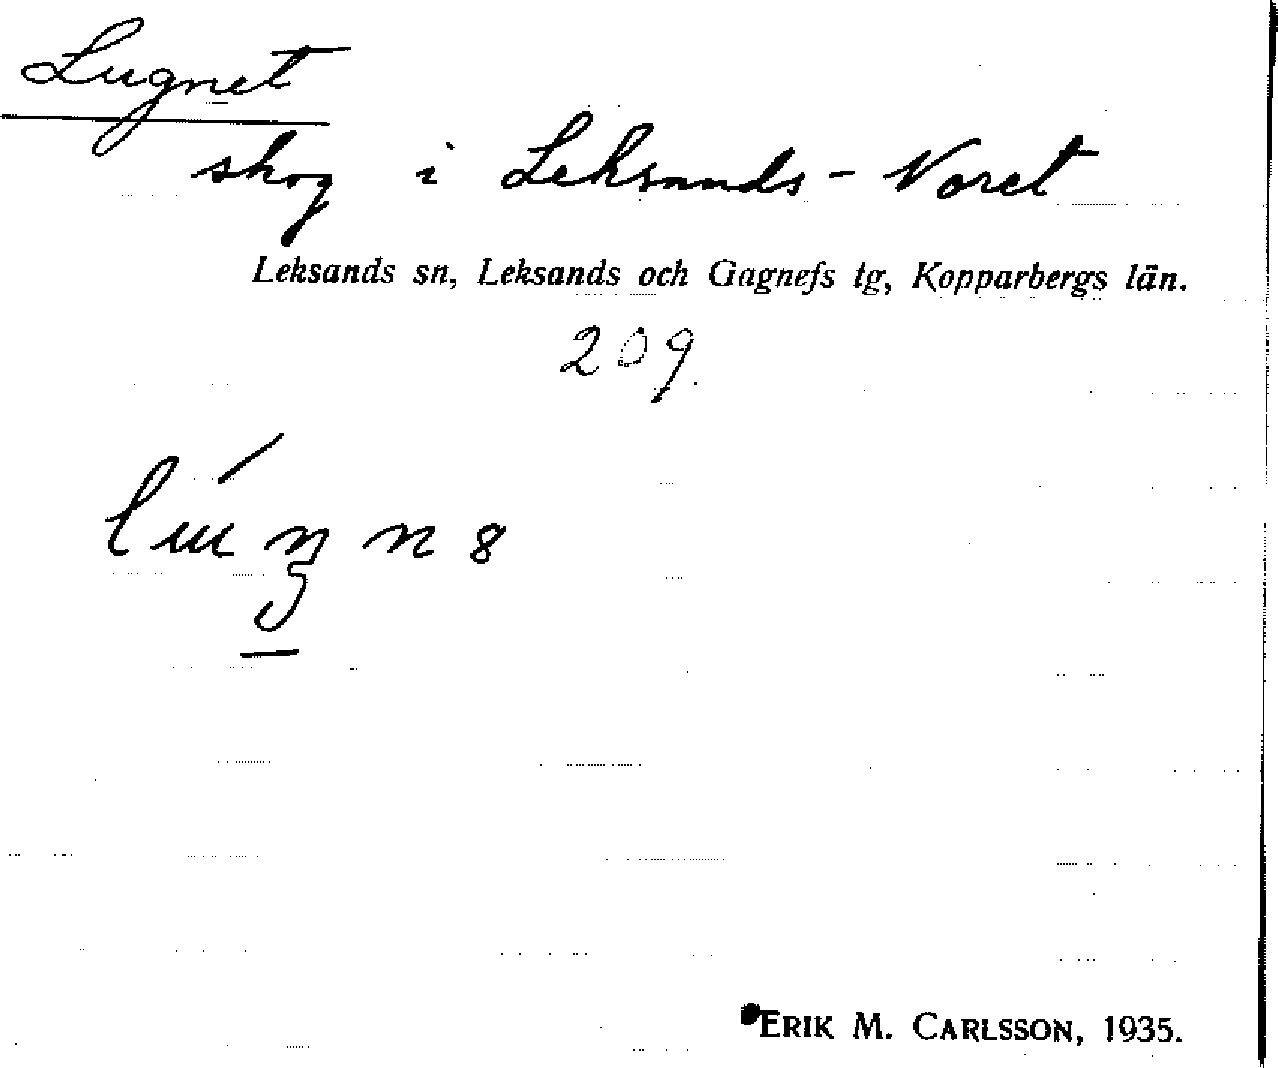 Lugnet
skog i Leksands-Noret
Leksands sn, Leksands och Gagnefs tg, Kopparbergs län.
209.
ERIK M. CARLSSON, 1935.